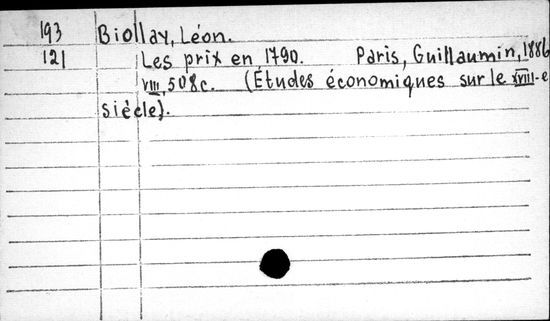 193 Biollay, Léon.
121 Les prix en 1790. Paris, Guillaumin, 1886
VIII, 508c. (Études économiques sur le XVIII-e
siècle).